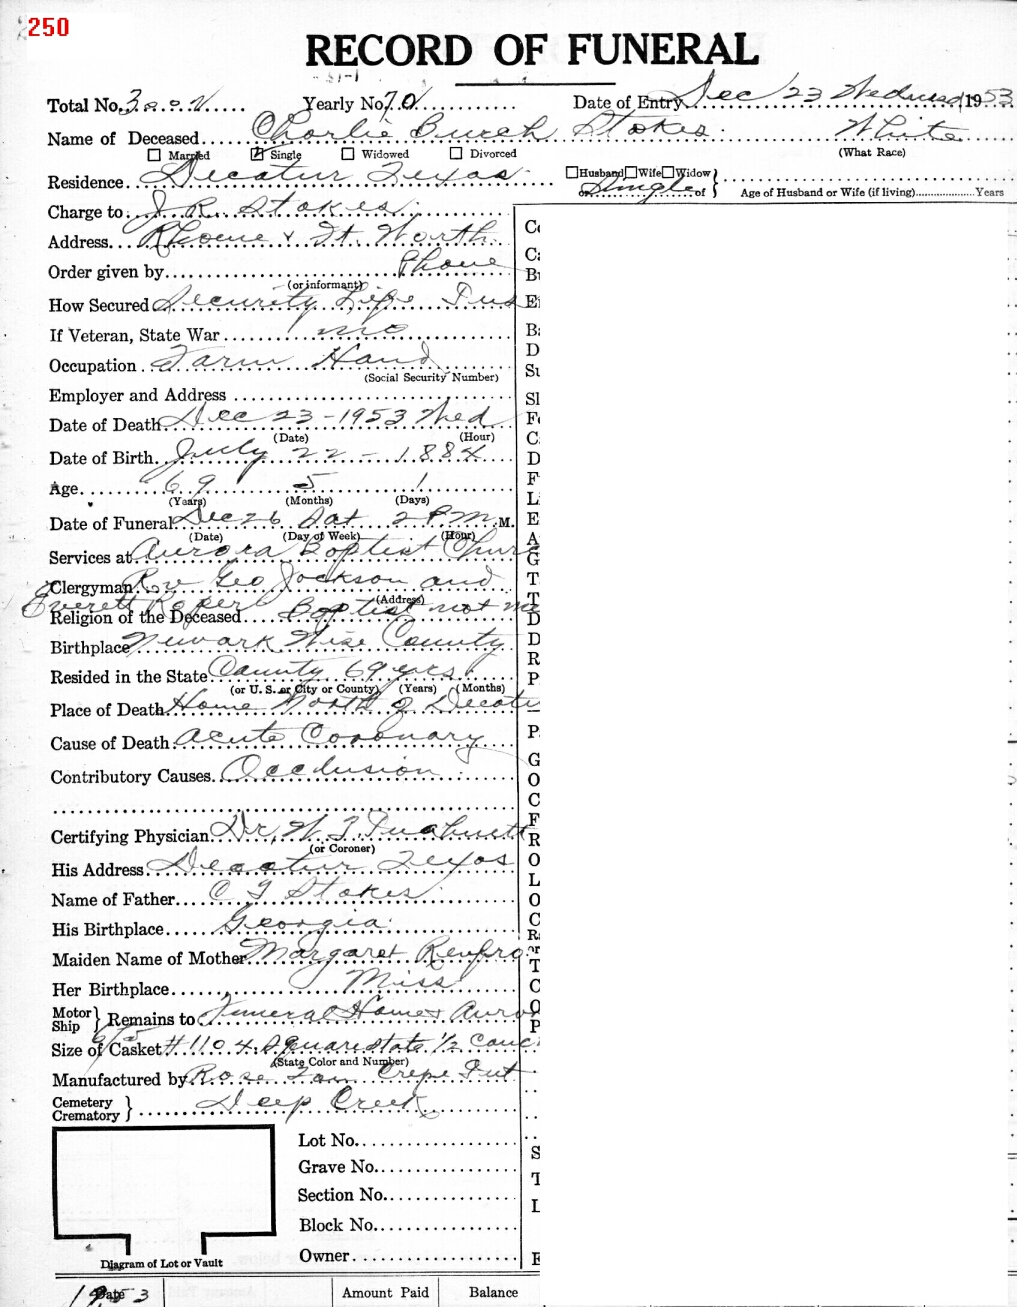 250
RECORD OF FUNERAL
Total No. Yearly No. 70 Date of Entry Dec 23 1953
Name of Deceased Charlie Burch Stokes White
Married Single Widowed Divorced (What Race)
Residence Decatur Texas Husband Wife Widow
or Single of Age of Husband or Wife (if living) Years
Charge to J. R. Stokes
Address Rhome & Ft. Worth
Order given by Phone
(or informant)
How Secured Security Life Ins
If Veteran, State War no
Occupation Farm Hand
(Social Security Number)
Employer and Address
Date of Death Dec 23 - 1953 Wed
(Date) (Hour)
Date of Birth July 22 - 1884
Age 69 5 1
(Years) (Months) (Days)
Date of Funeral Dec 26 Sat 2 P.M. M.
(Date) (Day of Week) (Hour)
Services at Aurora Baptist Church
Clergyman Rev Geo Jackson and
(Address)
Everett Roper
Religion of the Deceased Baptist not
Birthplace Newark Wise County
Resided in the State County 69 yrs
(or U. S. or City or County) (Years) (Months)
Place of Death Home North of Decatur
Cause of Death Acute Coronary
Contributory Causes Occlusion
Certifying Physician Dr, W. T.
(or Coroner)
His Address Decatur Texas
Name of Father C T Stokes
His Birthplace Georgia
Maiden Name of Mother Margaret Renfro
Her Birthplace Miss
Motor
Ship Remains to Funeral Home & Auro
Size of Casket # 110 4. Square state 1/2 Couc
(State Color and Number)
Manufactured by Rose Tan Crepe Int
Cemetery
Crematory Deep Creek
Lot No.
Grave No.
Section No.
Block No.
Owner
Diagram of Lot or Vault
1953
Date Amount Paid Balance